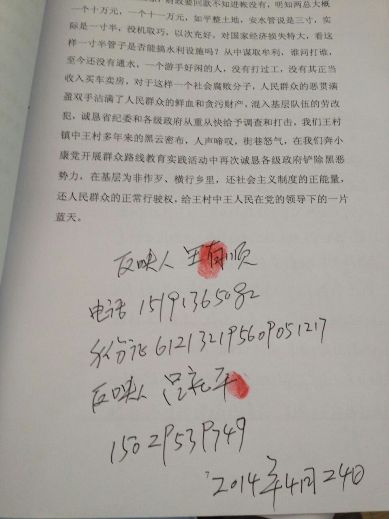 一个十万元，一个十一万元，如平整土地，安水管说是三寸，实
际是一寸半，投机取巧，以次充好，对国家经济损失特大，看这
样一寸半管子是否能搞水利设施吗？从中谋取牟利，谁问打谁，
至今还没有通水，一个游手好闲的人，没有打过工，没有其正当
收入买车卖房，对于这样一个社会腐败分子，人民群众的恶贯满
盈双手沾满了人民群众的鲜血和贪污财产，混入基层队伍的劳改
犯，诚恳省纪委和各级政府从重从快给予调查和打击，我们王村
镇中王村多年来的黑云密布，人声啼叹，街巷怒气，在我们奔小
康党开展群众路线教育实践活动中再次诚恳各级政府铲除黑恶
势力，在基层为非作歹、横行乡里，还社会主义制度的正能量，
还人民群众的正常行驶权，给王村中王人民在党的领导下的一片
蓝天。
反映人 王有顺
电话 15191365082
身份证 612132195609051217
反映人 吕 平
15029539749
2014年4月24日